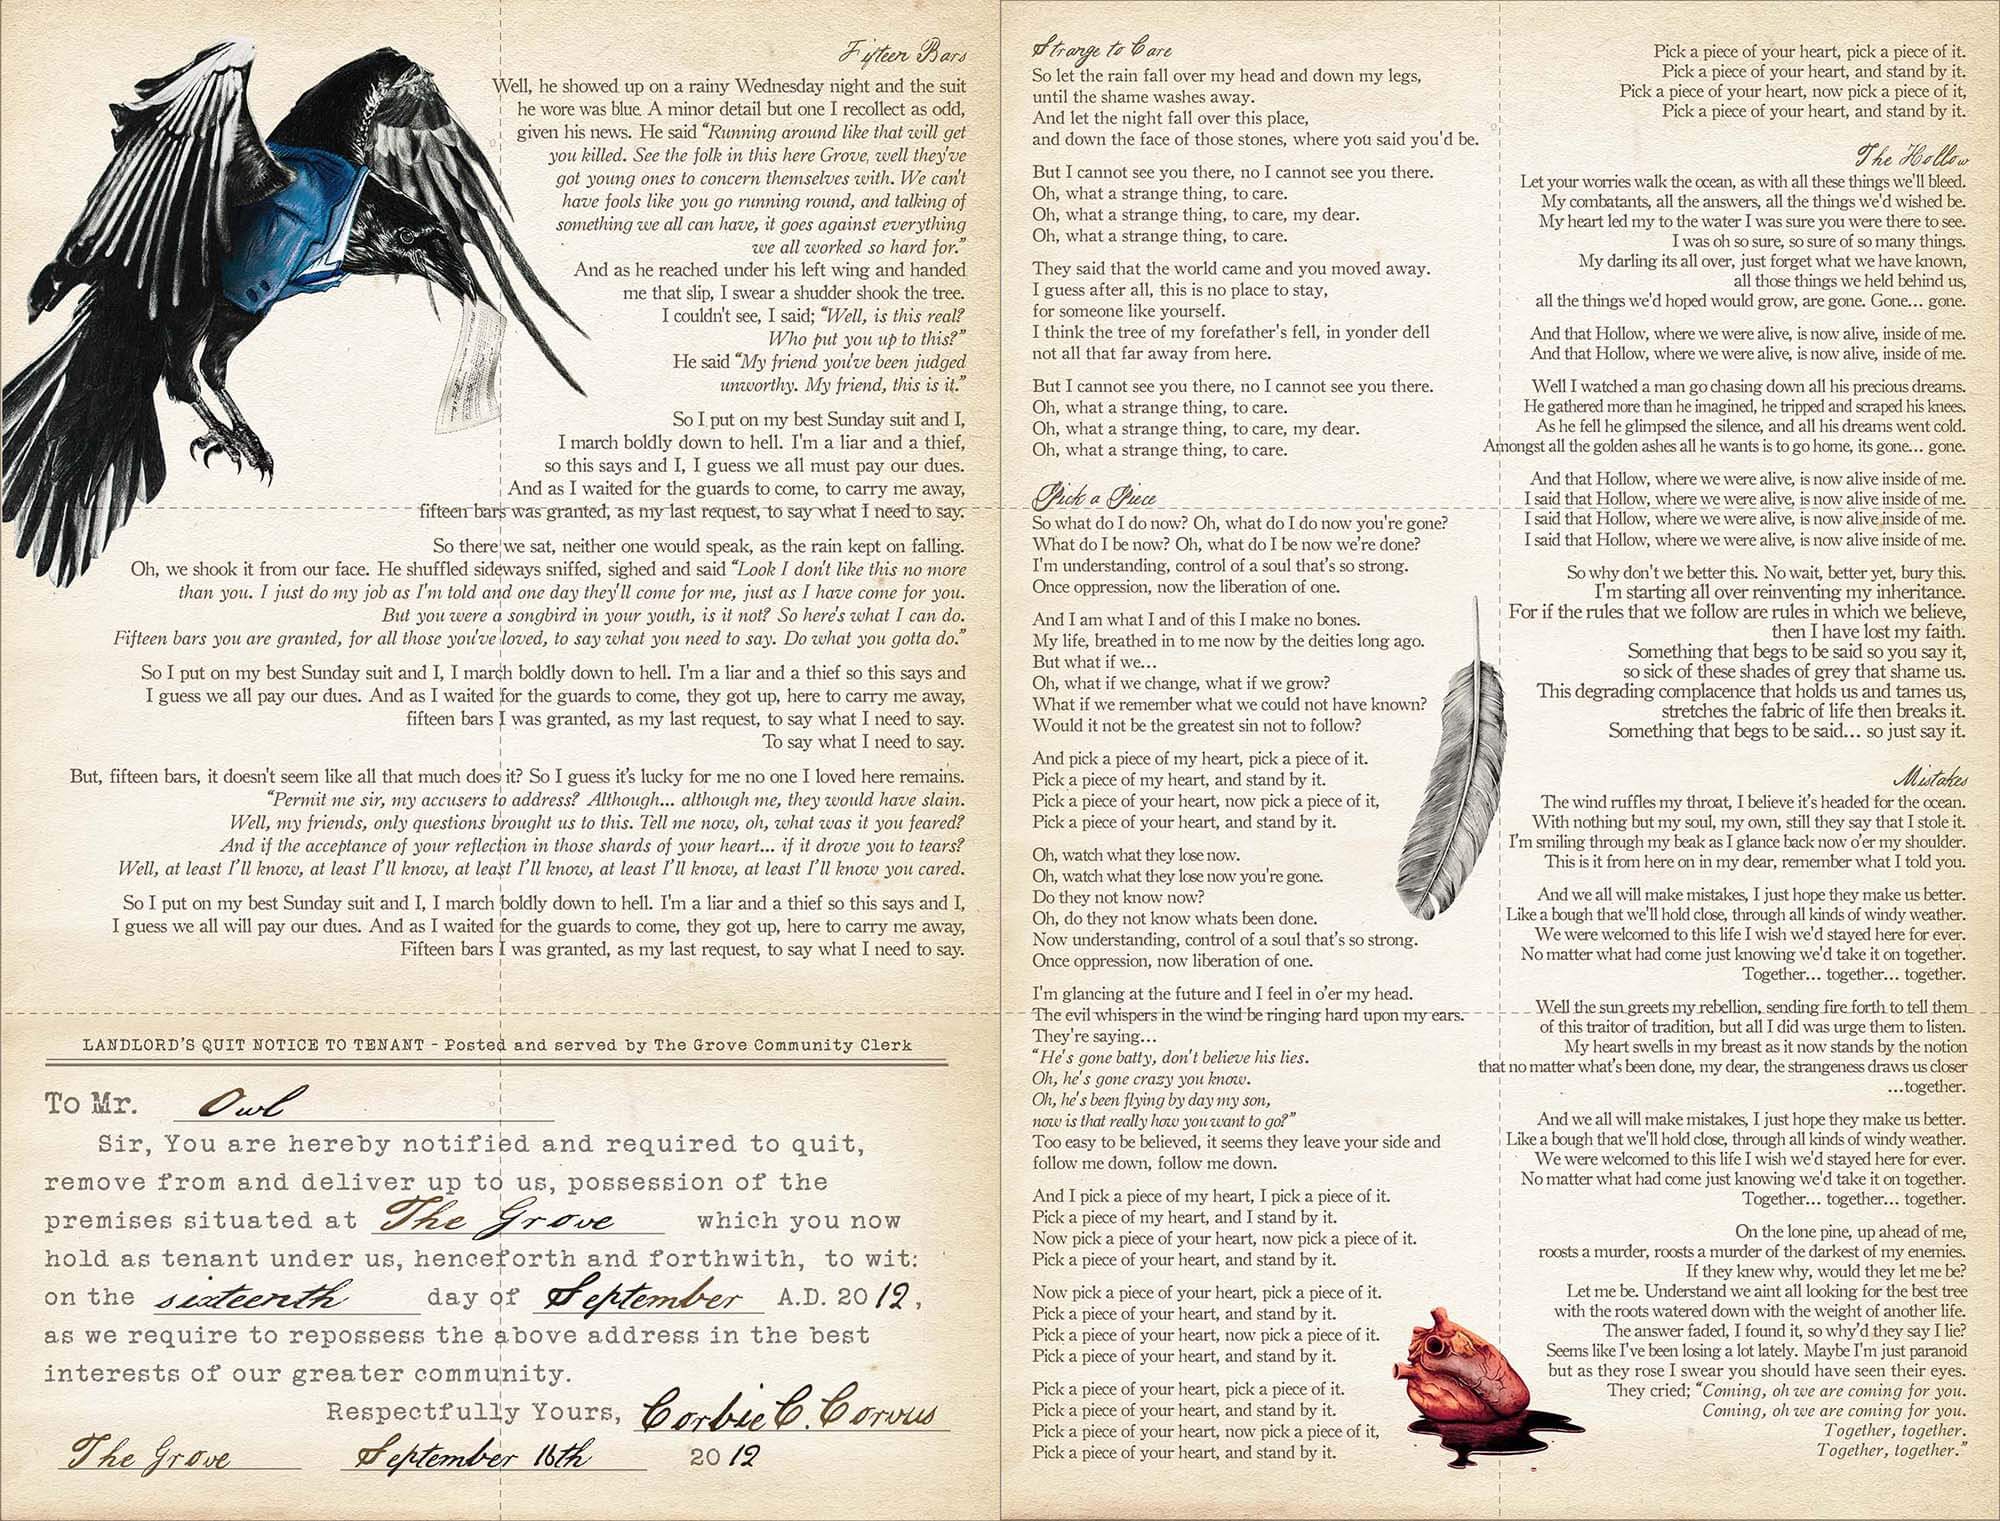 Fifteen Bars
Well, he showed up on a rainy Wednesday night and the suit
he wore was blue. A minor detail but one I recollect as odd,
given his news. He said “Running around like that will get
you killed. See the folk in this here Grove, well they've
got young ones to concern themselves with. We can't
have fools like you go running round, and talking of
something we all can have, it goes against everything
we all worked so hard for.”
And as he reached under his left wing and handed
me that slip, I swear a shudder shook the tree.
I couldn't see, I said; “Well, is this real?
Who put you up to this?”
He said “My friend you've been judged
unworthy. My friend, this is it.”
So I put on my best Sunday suit and I,
I march boldly down to hell. I'm a liar and a thief,
so this says and I, I guess we all must pay our dues.
And as I waited for the guards to come, to carry me away,
fifteen bars was granted, as my last request, to say what I need to say.
So there we sat, neither one would speak, as the rain kept on falling.
Oh, we shook it from our face. He shuffled sideways sniffed, sighed and said “Look I don't like this no more
than you. I just do my job as I'm told and one day they'll come for me, just as I have come for you.
But you were a songbird in your youth, is it not? So here's what I can do.
Fifteen bars you are granted, for all those you've loved, to say what you need to say. Do what you gotta do.”
So I put on my best Sunday suit and I, I march boldly down to hell. I'm a liar and a thief so this says and
I guess we all pay our dues. And as I waited for the guards to come, they got up, here to carry me away,
fifteen bars I was granted, as my last request, to say what I need to say.
To say what I need to say.
But, fifteen bars, it doesn't seem like all that much does it? So I guess it's lucky for me no one I loved here remains.
“Permit me sir, my accusers to address? Although... although me, they would have slain.
Well, my friends, only questions brought us to this. Tell me now, oh, what was it you feared?
And if the acceptance of your reflection in those shards of your heart... if it drove you to tears?
Well, at least I'll know, at least I'll know, at least I'll know, at least I'll know, at least I'll know you cared.
So I put on my best Sunday suit and I, I march boldly down to hell. I'm a liar and a thief so this says and I,
I guess we all will pay our dues. And as I waited for the guards to come, they got up, here to carry me away,
Fifteen bars I was granted, as my last request, to say what I need to say.
LANDLORD'S QUIT NOTICE TO TENANT - Posted and served by The Grove Community Clerk
To Mr. Owl
Sir, You are hereby notified and required to quit,
remove from and deliver up to us, possession of the
premises situated at The Grove which you now
hold as tenant under us, henceforth and forthwith, to wit:
on the sixteenth day of September A.D. 2012,
as we require to repossess the above address in the best
interests of our greater community.
Respectfully Yours, Corbie C. Corvus
The Grove September 16th 2012
Strange to Care
So let the rain fall over my head and down my legs,
until the shame washes away.
And let the night fall over this place,
and down the face of those stones, where you said you'd be.
But I cannot see you there, no I cannot see you there.
Oh, what a strange thing, to care.
Oh, what a strange thing, to care, my dear.
Oh, what a strange thing, to care.
They said that the world came and you moved away.
I guess after all, this is no place to stay,
for someone like yourself.
I think the tree of my forefather's fell, in yonder dell
not all that far away from here.
But I cannot see you there, no I cannot see you there.
Oh, what a strange thing, to care.
Oh, what a strange thing, to care, my dear.
Oh, what a strange thing, to care.
Pick a Piece
So what do I do now? Oh, what do I do now you're gone?
What do I be now? Oh, what do I be now we're done?
I'm understanding, control of a soul that's so strong.
Once oppression, now the liberation of one.
And I am what I and of this I make no bones.
My life, breathed in to me now by the deities long ago.
But what if we...
Oh, what if we change, what if we grow?
What if we remember what we could not have known?
Would it not be the greatest sin not to follow?
And pick a piece of my heart, pick a piece of it.
Pick a piece of my heart, and stand by it.
Pick a piece of your heart, now pick a piece of it,
Pick a piece of your heart, and stand by it.
Oh, watch what they lose now.
Oh, watch what they lose now you're gone.
Do they not know now?
Oh, do they not know whats been done.
Now understanding, control of a soul that's so strong.
Once oppression, now liberation of one.
I'm glancing at the future and I feel in o'er my head.
The evil whispers in the wind be ringing hard upon my ears.
They're saying...
“He's gone batty, don't believe his lies.
Oh, he's gone crazy you know.
Oh, he's been flying by day my son,
now is that really how you want to go?”
Too easy to be believed, it seems they leave your side and
follow me down, follow me down.
And I pick a piece of my heart, I pick a piece of it.
Pick a piece of my heart, and I stand by it.
Now pick a piece of your heart, now pick a piece of it.
Pick a piece of your heart, and stand by it.
Now pick a piece of your heart, pick a piece of it.
Pick a piece of your heart, and stand by it.
Pick a piece of your heart, now pick a piece of it.
Pick a piece of your heart, and stand by it.
Pick a piece of your heart, pick a piece of it.
Pick a piece of your heart, and stand by it.
Pick a piece of your heart, now pick a piece of it,
Pick a piece of your heart, and stand by it.
Pick a piece of your heart, pick a piece of it.
Pick a piece of your heart, and stand by it.
Pick a piece of your heart, now pick a piece of it,
Pick a piece of your heart, and stand by it.
The Hollow
Let your worries walk the ocean, as with all these things we'll bleed.
My combatants, all the answers, all the things we'd wished be.
My heart led my to the water I was sure you were there to see.
I was oh so sure, so sure of so many things.
My darling its all over, just forget what we have known,
all those things we held behind us,
all the things we'd hoped would grow, are gone. Gone... gone.
And that Hollow, where we were alive, is now alive, inside of me.
And that Hollow, where we were alive, is now alive, inside of me.
Well I watched a man go chasing down all his precious dreams.
He gathered more than he imagined, he tripped and scraped his knees.
As he fell he glimpsed the silence, and all his dreams went cold.
Amongst all the golden ashes all he wants is to go home, its gone... gone.
And that Hollow, where we were alive, is now alive inside of me.
I said that Hollow, where we were alive, is now alive inside of me.
I said that Hollow, where we were alive, is now alive inside of me.
I said that Hollow, where we were alive, is now alive inside of me.
So why don't we better this. No wait, better yet, bury this.
I'm starting all over reinventing my inheritance.
For if the rules that we follow are rules in which we believe,
then I have lost my faith.
Something that begs to be said so you say it,
so sick of these shades of grey that shame us.
This degrading complacence that holds us and tames us,
stretches the fabric of life then breaks it.
Something that begs to be said... so just say it.
Mistakes
The wind ruffles my throat, I believe it's headed for the ocean.
With nothing but my soul, my own, still they say that I stole it.
I'm smiling through my beak as I glance back now o'er my shoulder.
This is it from here on in my dear, remember what I told you.
And we all will make mistakes, I just hope they make us better.
Like a bough that we'll hold close, through all kinds of windy weather.
We were welcomed to this life I wish we'd stayed here for ever.
No matter what had come just knowing we'd take it on together.
Together... together... together.
Well the sun greets my rebellion, sending fire forth to tell them
of this traitor of tradition, but all I did was urge them to listen.
My heart swells in my breast as it now stands by the notion
that no matter what's been done, my dear, the strangeness draws us closer
...together.
And we all will make mistakes, I just hope they make us better.
Like a bough that we'll hold close, through all kinds of windy weather.
We were welcomed to this life I wish we'd stayed here for ever.
No matter what had come just knowing we'd take it on together.
Together... together... together.
On the lone pine, up ahead of me,
roosts a murder, roosts a murder of the darkest of my enemies.
If they knew why, would they let me be?
Let me be. Understand we aint all looking for the best tree
with the roots watered down with the weight of another life.
The answer faded, I found it, so why'd they say I lie?
Seems like I've been losing a lot lately. Maybe I'm just paranoid
but as they rose I swear you should have seen their eyes.
They cried; “Coming, oh we are coming for you.
Coming, oh we are coming for you.
Together, together.
Together, together.”